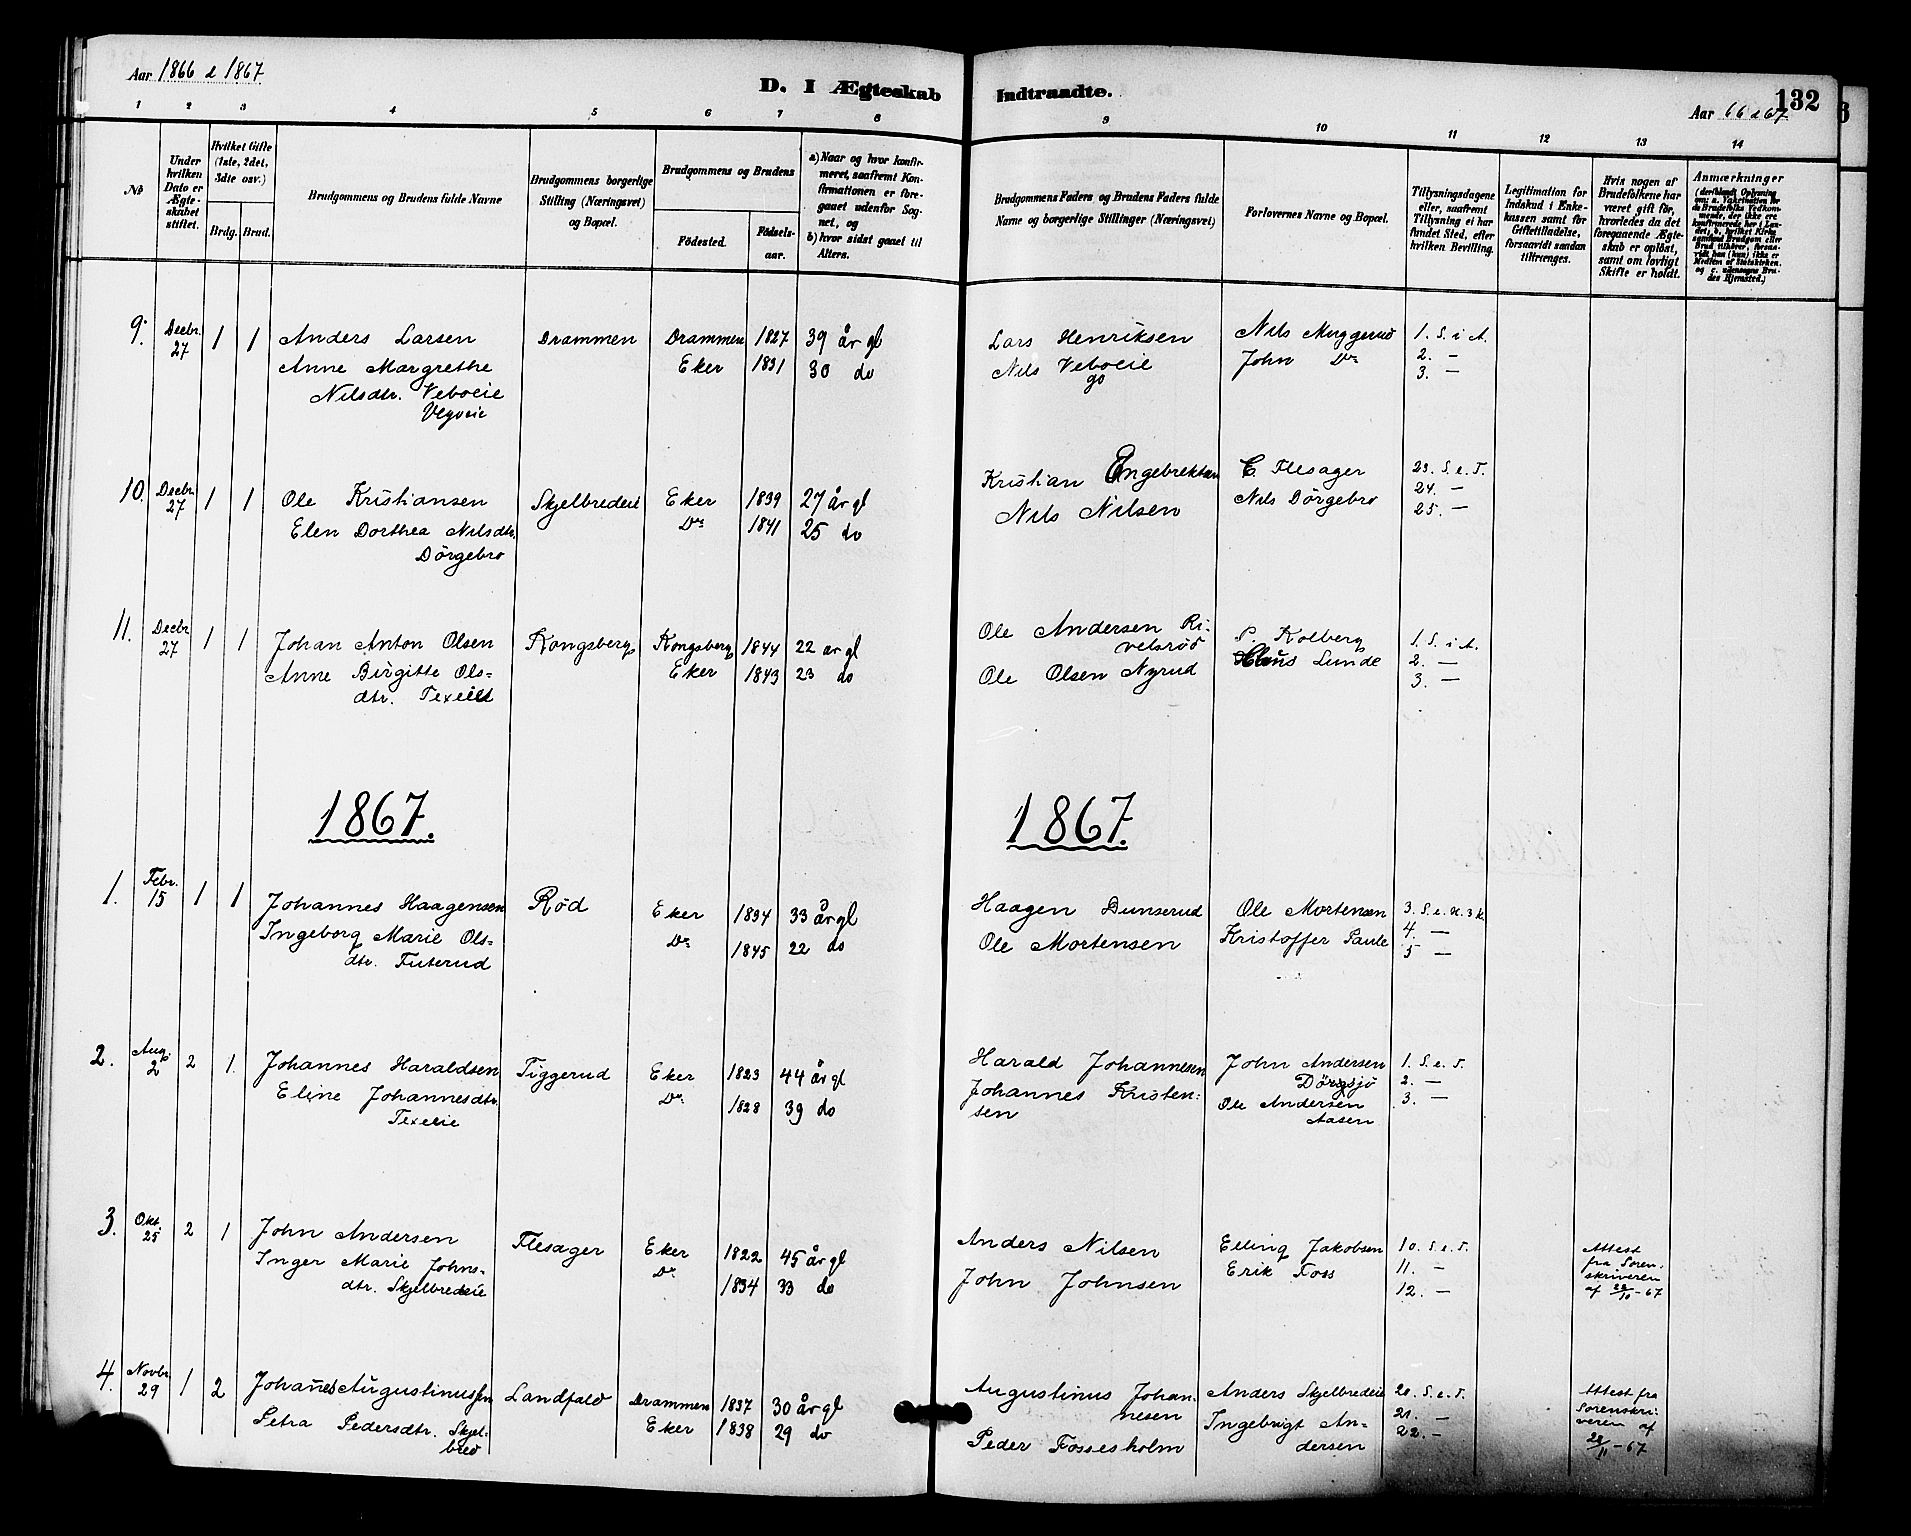 Aar 1866 & 1867
D. I Ægteskab Indtraadte.
Aar 66 & 67
132
1 2 3 4 5 6 7 8 9 10 11 12 13 14
No
Under hvilken Dato er Ægteskabet stiftet.
Hvilket Gifte (1ste, 2det, 3die osv.)
Brdg. Brud.
Brudgommens og Brudens fulde Navne
Brudgommens borgerlige Stilling (Næringsvei) og Bopæl.
Brudgommens og Brudens
Fødested. Fødsels-aar.
a) Naar og hvor konfir-
meret, saafremt Kon-
firmationen er fore-
gaaet udenfor Sog-
net, og
b) hvor sidst gaaet til
Alters.
Brudgommens Faders og Brudens Faders fulde
Navne og borgerlige Stillinger (Næringsvei)
Forlovernes Navne og Bopæl.
Tillysningsdagene
eller, saafremt
Tillysning ei har
fundet Sted, efter
hvilken Bevilling.
Legitimation for
Indskud i Enke-
kassen samt for
Giftetilladelse,
forsaavidt saadan
tiltrænges.
Hvis nogen af
Brudefolkene har
været gift før,
hvorledes da det
foregaaende Ægte-
skab er opløst,
samt om lovligt
Skifte er holdt.
Anmærkninger
(deriblandt Oplysning
om: a. Vakcination for
de Brudefolks Vedkom-
mende, der ikke ere
konfirmerede her i Lan-
det, b. hvilket Kirke
samfund Brudgom eller
Brud tilhører, forsaa-
vidt han (hun) ikke er
Medlem af Statskirken.
og c. udensogns Bru-
des Hjemsted.)
9. Decbr. 27 1 1 Anders Larsen Drammen Drammen 1827 39 år gl Lars Henriksen Nils Muggerud 1. S. i A.
Anne Margrethe Eker 1831 30 do Nils Veboeie John Do 2. —
go 3. —
Nilsdtr. Veboeie
Vegveie
10. Decbr. 27 1 1 Ole Kristiansen Skjelbredeie Eker 1839 27 år gl Kristian Engebrektsen C. Flesager 23. S. e. T.
Elen Dorthea Nilsdtr. Do 1841 25 do Nils Nilsen Nils Dörgebro 24. —
Dörgebro 25. —
11. Decbr 27 1 1 Johan Anton Olsen Kongsberg Kongsberg 1844 22 ar gl Ole Andersen Ri-
velsrød P. Kolberg 1. S. i A.
Anne Birgitte Ols- Eker 1843 23 do Ole Olsen Nyrud Claus Lunde 2. —
dtr. Texeiet 3. —
1867. 1867.
1. Febr. 15 1 1 Johannes Haagensen Rød Eker 1834 33 år gl Haagen Dunserud Ole Mortensen 3. S. e. H. 3 k.
Ingeborg Marie Ols- Do 1845 22 do Ole Mortensen Kristoffer Paule 4. —
dtr. Futerud 5 —
2. Aug. 2 2 1. Johannes Haraldsen Tiggerud Eker 1823 44 år gl Harald Johannesen John Andersen 1. S. e. T.
Dörgsjø 2. —
Eline Johannesdtr. Do 1828 39 do Johannes Kristen-
sen Ole Andersen 3. —
Texeie Aasen
3. Okt. 25 2 1 John Andersen Flesager Eker 1822 45 år gl Anders Nilsen Elling Jakobsen 10. S. e. T. Attest
Inger Marie Johns- Do 1834 33 do John Johnsen Erik Foss 11. — fra Soren-
dtr. Skjelbredeie 12. — skriveren
af 22/10 - 67
4. Novbr 29 1 2 Johanes Augustinussen Landfald Drammen 1837 30 år gl Augustinus Johan-
nesen Anders Skjelbredeie 20. S. e. T. Attest fra
Petra Pedersdtr. Skjel-
bred Eker 1838 29 do Peder Fossesholm Ingebrigt An-
dersen 21. — Sorenskri-
22. — veren af
28/11 - 67